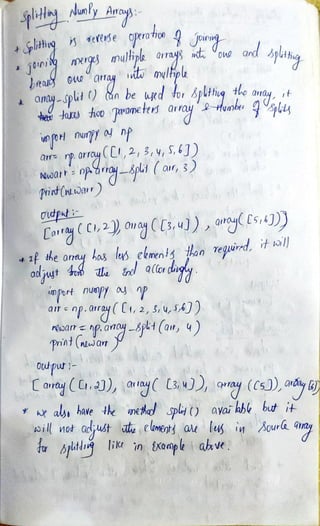 Splitting NumPy Arrays:-
* Splitting is reverse operation of joining
* joining merges multiple arrays into one and splitting
breaks one array into multiple
* array-split() can be used for splitting the array, it
takes two parameters array & number of splits
import numpy as np
arr= np.array([1, 2, 3, 4, 5, 6])
newarr = np.array_split (arr, 3)
print(newarr)
output:-
[array([1, 2]), array([3,4]), array([5,6])]
* If the array has less elements than required, it will
adjust from the end accordingly.
import numpy as np
arr = np.array([1, 2, 3, 4, 5, 6])
newarr = np.array_split(arr, 4)
print (newarr)
output:-
[array([1,2]), array([3,4]), array([5]), array[6])]
* we also have the method split() available but it
will not adjust the elements are less in source array
for splitting like in example above.